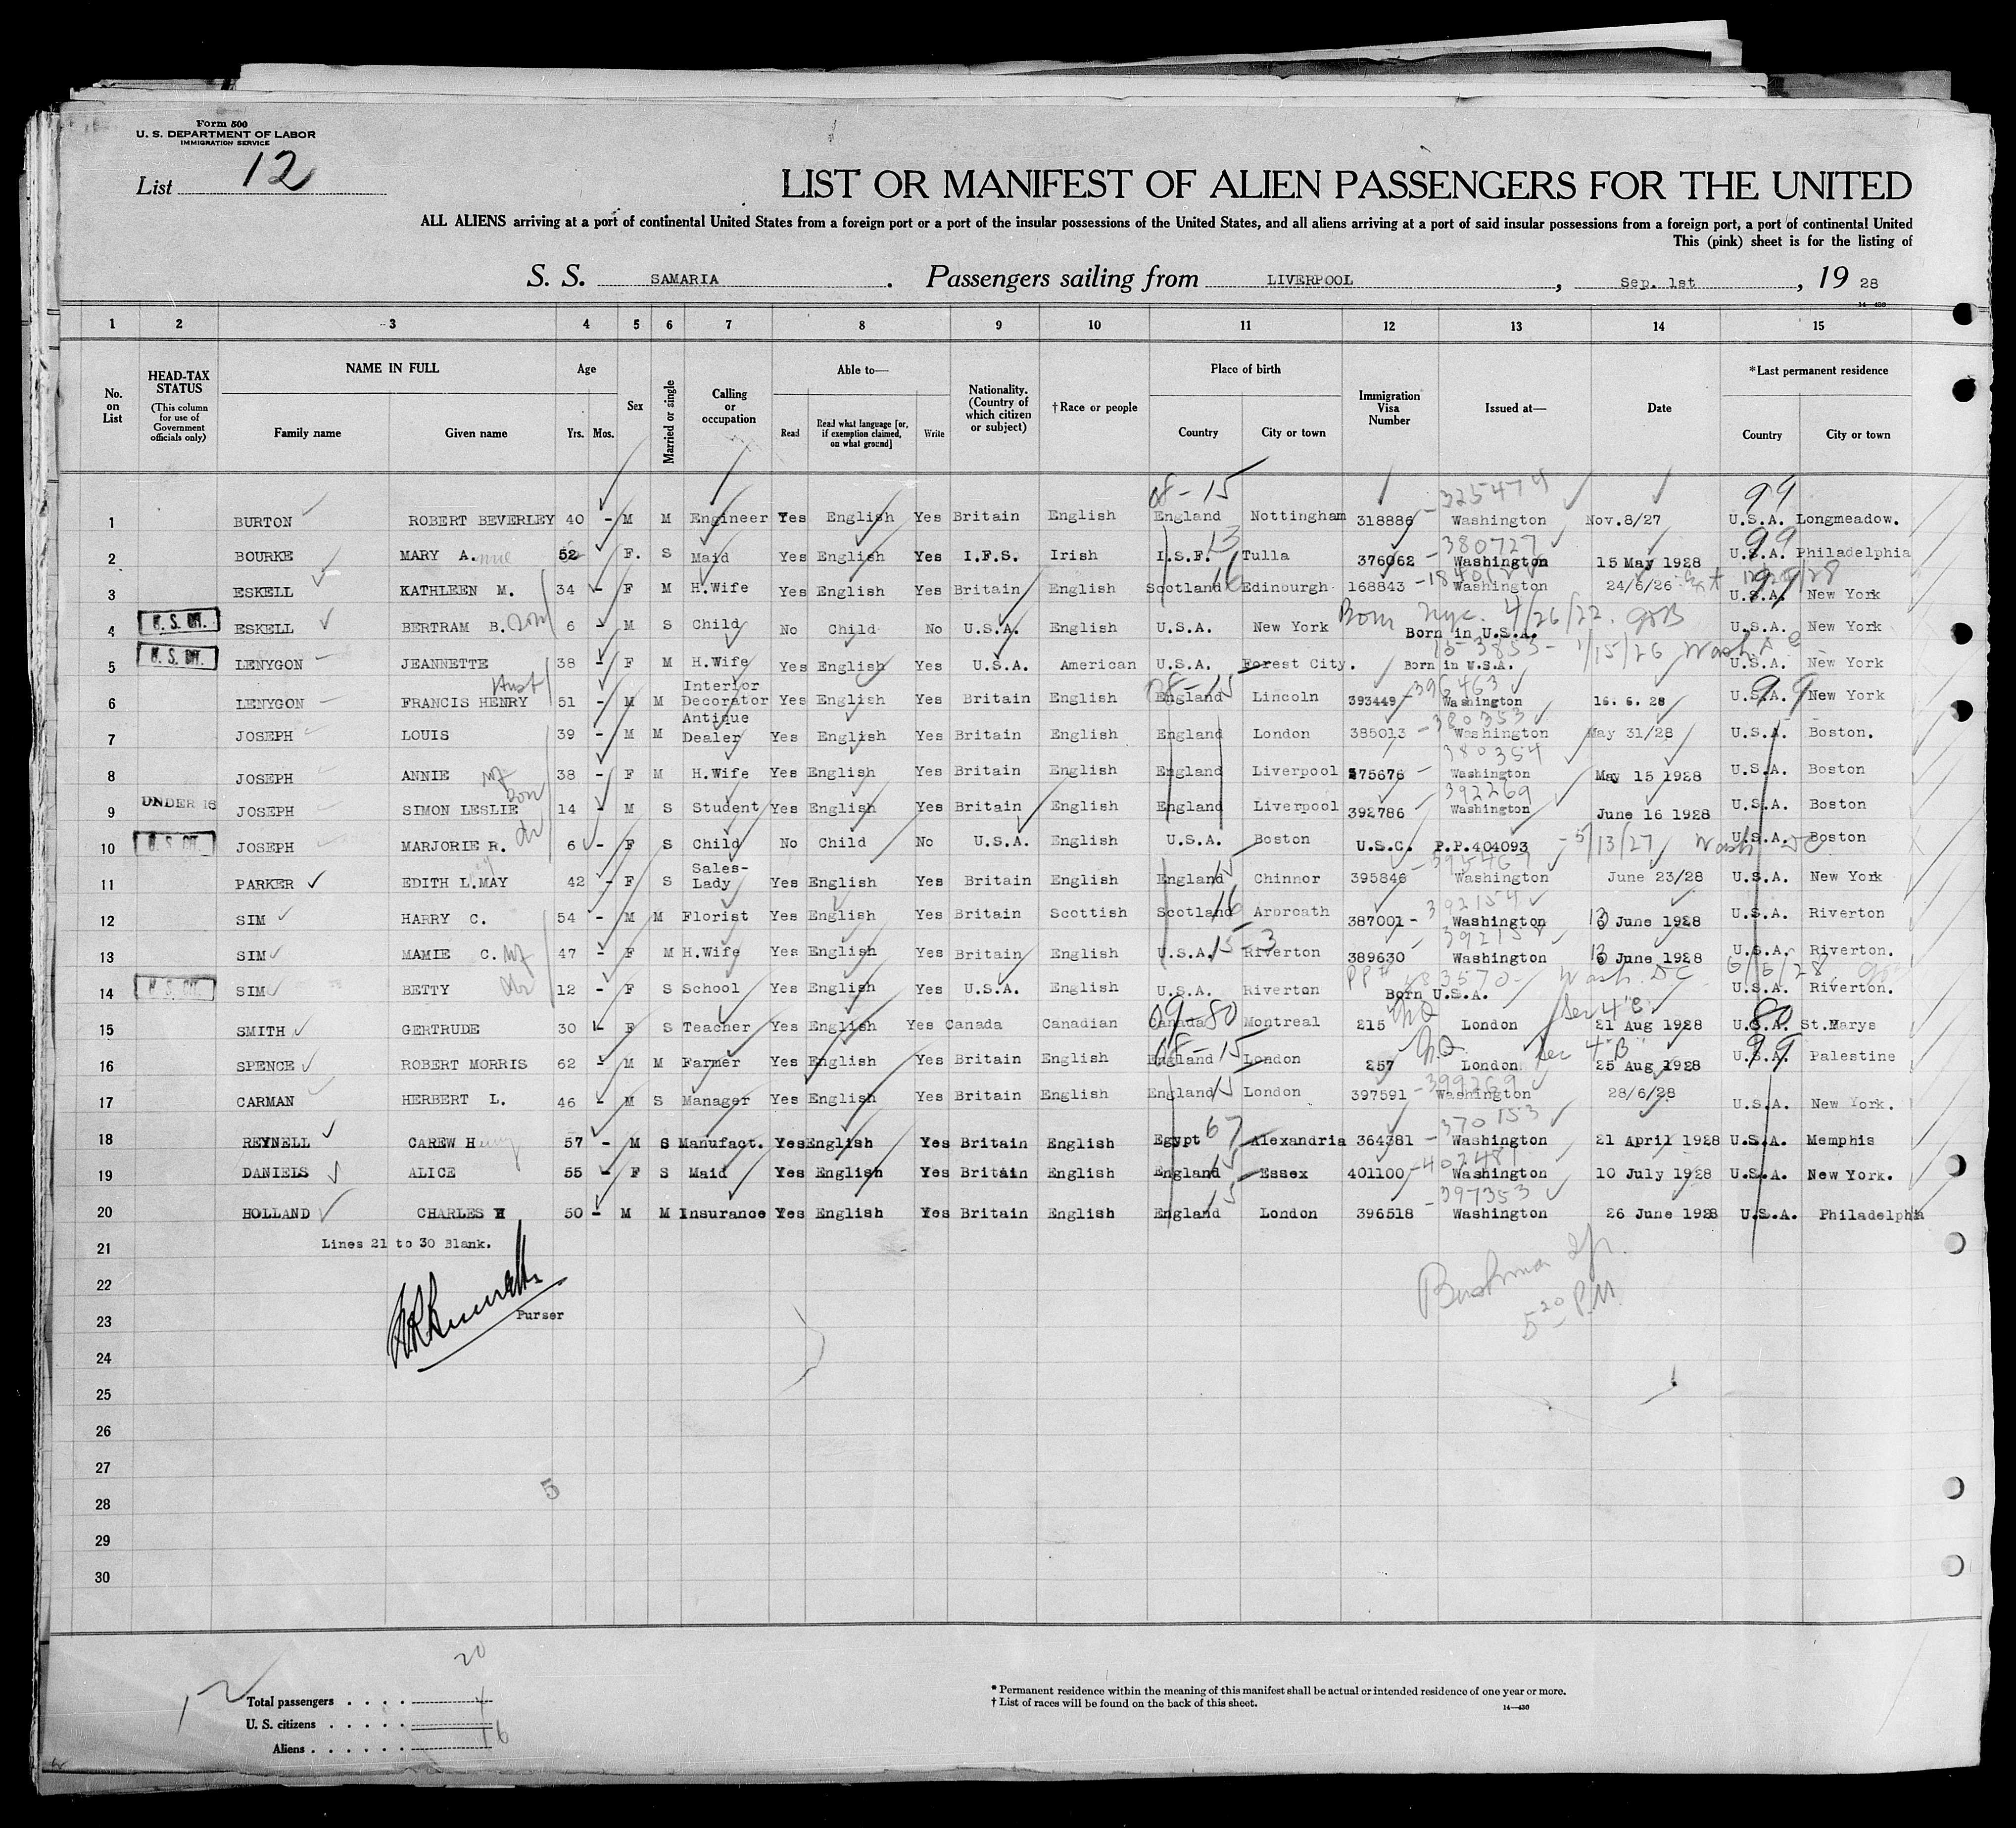 Form 500
U. S. DEPARTMENT OF LABOR
IMMIGRATION SERVICE
List 12
LIST OR MANIFEST OF ALIEN PASSENGERS FOR THE UNITED
ALL ALIENS arriving at a port of continental United States from a foreign port or a port of the insular possessions of the United States, and all aliens arriving at a port of said insular possessions from a foreign port, a port of continental United
This (pink) sheet is for the listing of
S. S. SAMARIA. Passengers sailing from LIVERPOOL, Sep. 1st, 19 28
1 2 3 4 5 6 7 8 9 10 11 12 13 14 15
No. on List
HEAD-TAX STATUS (This column for use of Government officials only)
NAME IN FULL Family name Given name
Age Yrs. Mos.
Sex
Married or single
Calling or occupation
Able to— Read Read what language [or, if exemption claimed, on what ground] Write
Nationality. (Country of which citizen or subject)
†Race or people
Place of birth Country City or town
Immigration Visa Number
Issued at—
Date
*Last permanent residence Country City or town
08-15 325474 99
1 BURTON ROBERT BEVERLEY 40 - M M Engineer Yes English Yes Britain English England Nottingham 318886 Washington Nov.8/27 U.S.A. Longmeadow.
13 380727 99
2 BOURKE MARY A. 52 F. S Maid Yes English Yes I.F.S. Irish I.S.F. Tulla 376062 Washington 15 May 1928 U.S.A. Philadelphia
3 ESKELL KATHLEEN M. 34 - F M H.Wife Yes English Yes Britain English Scotland 16 Edinourgh 168843 Washington 24/6/26 U.S.A. New York
Born NYC. 4/26/22.
4 U. S. CIT. ESKELL BERTRAM B. Son 6 - M S Child No Child No U.S.A. English U.S.A. New York Born in U.S.A. U.S.A. New York
15-3853- 1/15/26 Wash. D C
5 U. S. CIT. LENYGON JEANNETTE 38 - F M H.Wife Yes English Yes U.S.A. American U.S.A. Forest City. Born in U.S.A. U.S.A. New York
Husb 08-15 396463 99
6 LENYGON FRANCIS HENRY 51 - M M Interior Decorator Yes English Yes Britain English England Lincoln 393449 Washington 16. 6. 28 U.S.A. New York
380353
7 JOSEPH LOUIS 39 - M M Antique Dealer Yes English Yes Britain English England London 385013 Washington May 31/28 U.S.A. Boston.
380354
8 JOSEPH ANNIE wf 38 - F M H.Wife Yes English Yes Britain English England Liverpool 375676 Washington May 15 1928 U.S.A. Boston
Son 392269
9 UNDER 16 JOSEPH SIMON LESLIE 14 - M S Student Yes English Yes Britain English England Liverpool 392786 Washington June 16 1928 U.S.A. Boston
10 U. S. CIT. JOSEPH MARJORIE R. 6 - F S Child No Child No U.S.A. English U.S.A. Boston U.S.C. P.P.404093 -5/13/27 Wash DC U.S.A. Boston
395467
11 PARKER EDITH L.MAY 42 - F S Sales-Lady Yes English Yes Britain English England 15 Chinnor 395846 Washington June 23/28 U.S.A. New York
392154
12 SIM HARRY C. 54 - M M Florist Yes English Yes Britain Scottish Scotland 16 Arbroath 387001 - Washington 13 June 1928 U.S.A. Riverton
13 SIM MAMIE C. wf 47 - F M H.Wife Yes English Yes Britain English U.S.A. 15-3 Riverton 389630 Washington 13 June 1928 U.S.A. Riverton.
PP# Wash. DC 6/5/28
14 U. S. CIT. SIM BETTY 12 - F S School Yes English Yes U.S.A. English U.S.A. Riverton Born U.S.A. U.S.A. Riverton.
09-80 NQ Sec 4"E" 80
15 SMITH GERTRUDE 30 - F S Teacher Yes English Yes Canada Canadian Canada Montreal 215 London 21 Aug 1928 U.S.A. St.Marys
08-15 N.Q. Sec 4"B" 99
16 SPENCE ROBERT MORRIS 62 - M M Farmer Yes English Yes Britain English England London 257 London 25 Aug 1928 U.S.A. Palestine
399269
17 CARMAN HERBERT L. 46 - M S Manager Yes English Yes Britain English England 15 London 397591 Washington 28/6/28 U.S.A. New York.
370153
18 REYNELL CAREW H 57 - M S Manufact. Yes English Yes Britain English Egypt 67 Alexandria 364381 Washington 21 April 1928 U.S.A. Memphis
19 DANIELS ALICE 55 - F S Maid Yes English Yes Britain English England 15 Essex 401100 Washington 10 July 1928 U.S.A. New York.
397353
20 HOLLAND CHARLES H 50 - M M Insurance Yes English Yes Britain English England 15 London 396518 Washington 26 June 1928 U.S.A. Philadelphia
21 Lines 21 to 30 Blank.
22
23 Purser
5 20 P.M.
24
25
26
27
28
5
29
30
20
12
Total passengers
U. S. citizens 4
Aliens 16
* Permanent residence within the meaning of this manifest shall be actual or intended residence of one year or more.
† List of races will be found on the back of this sheet.
14—430